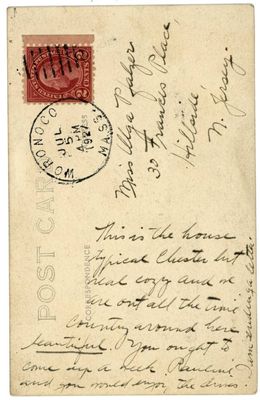 2 CENTS 2
WORONOCO
JUL
5
A M
1927
MASS.
Miss Olga
30 Frances Place
Hillside
N. Jersey.
POST CAR
CORRESPONDENCE
ESS
This is the house
typical Chester but
real cozy and we
are out all the time
Country around here
beautiful. You ought to
come up a week Pauline
and you would enjoy the drives.
I am sending a letter.